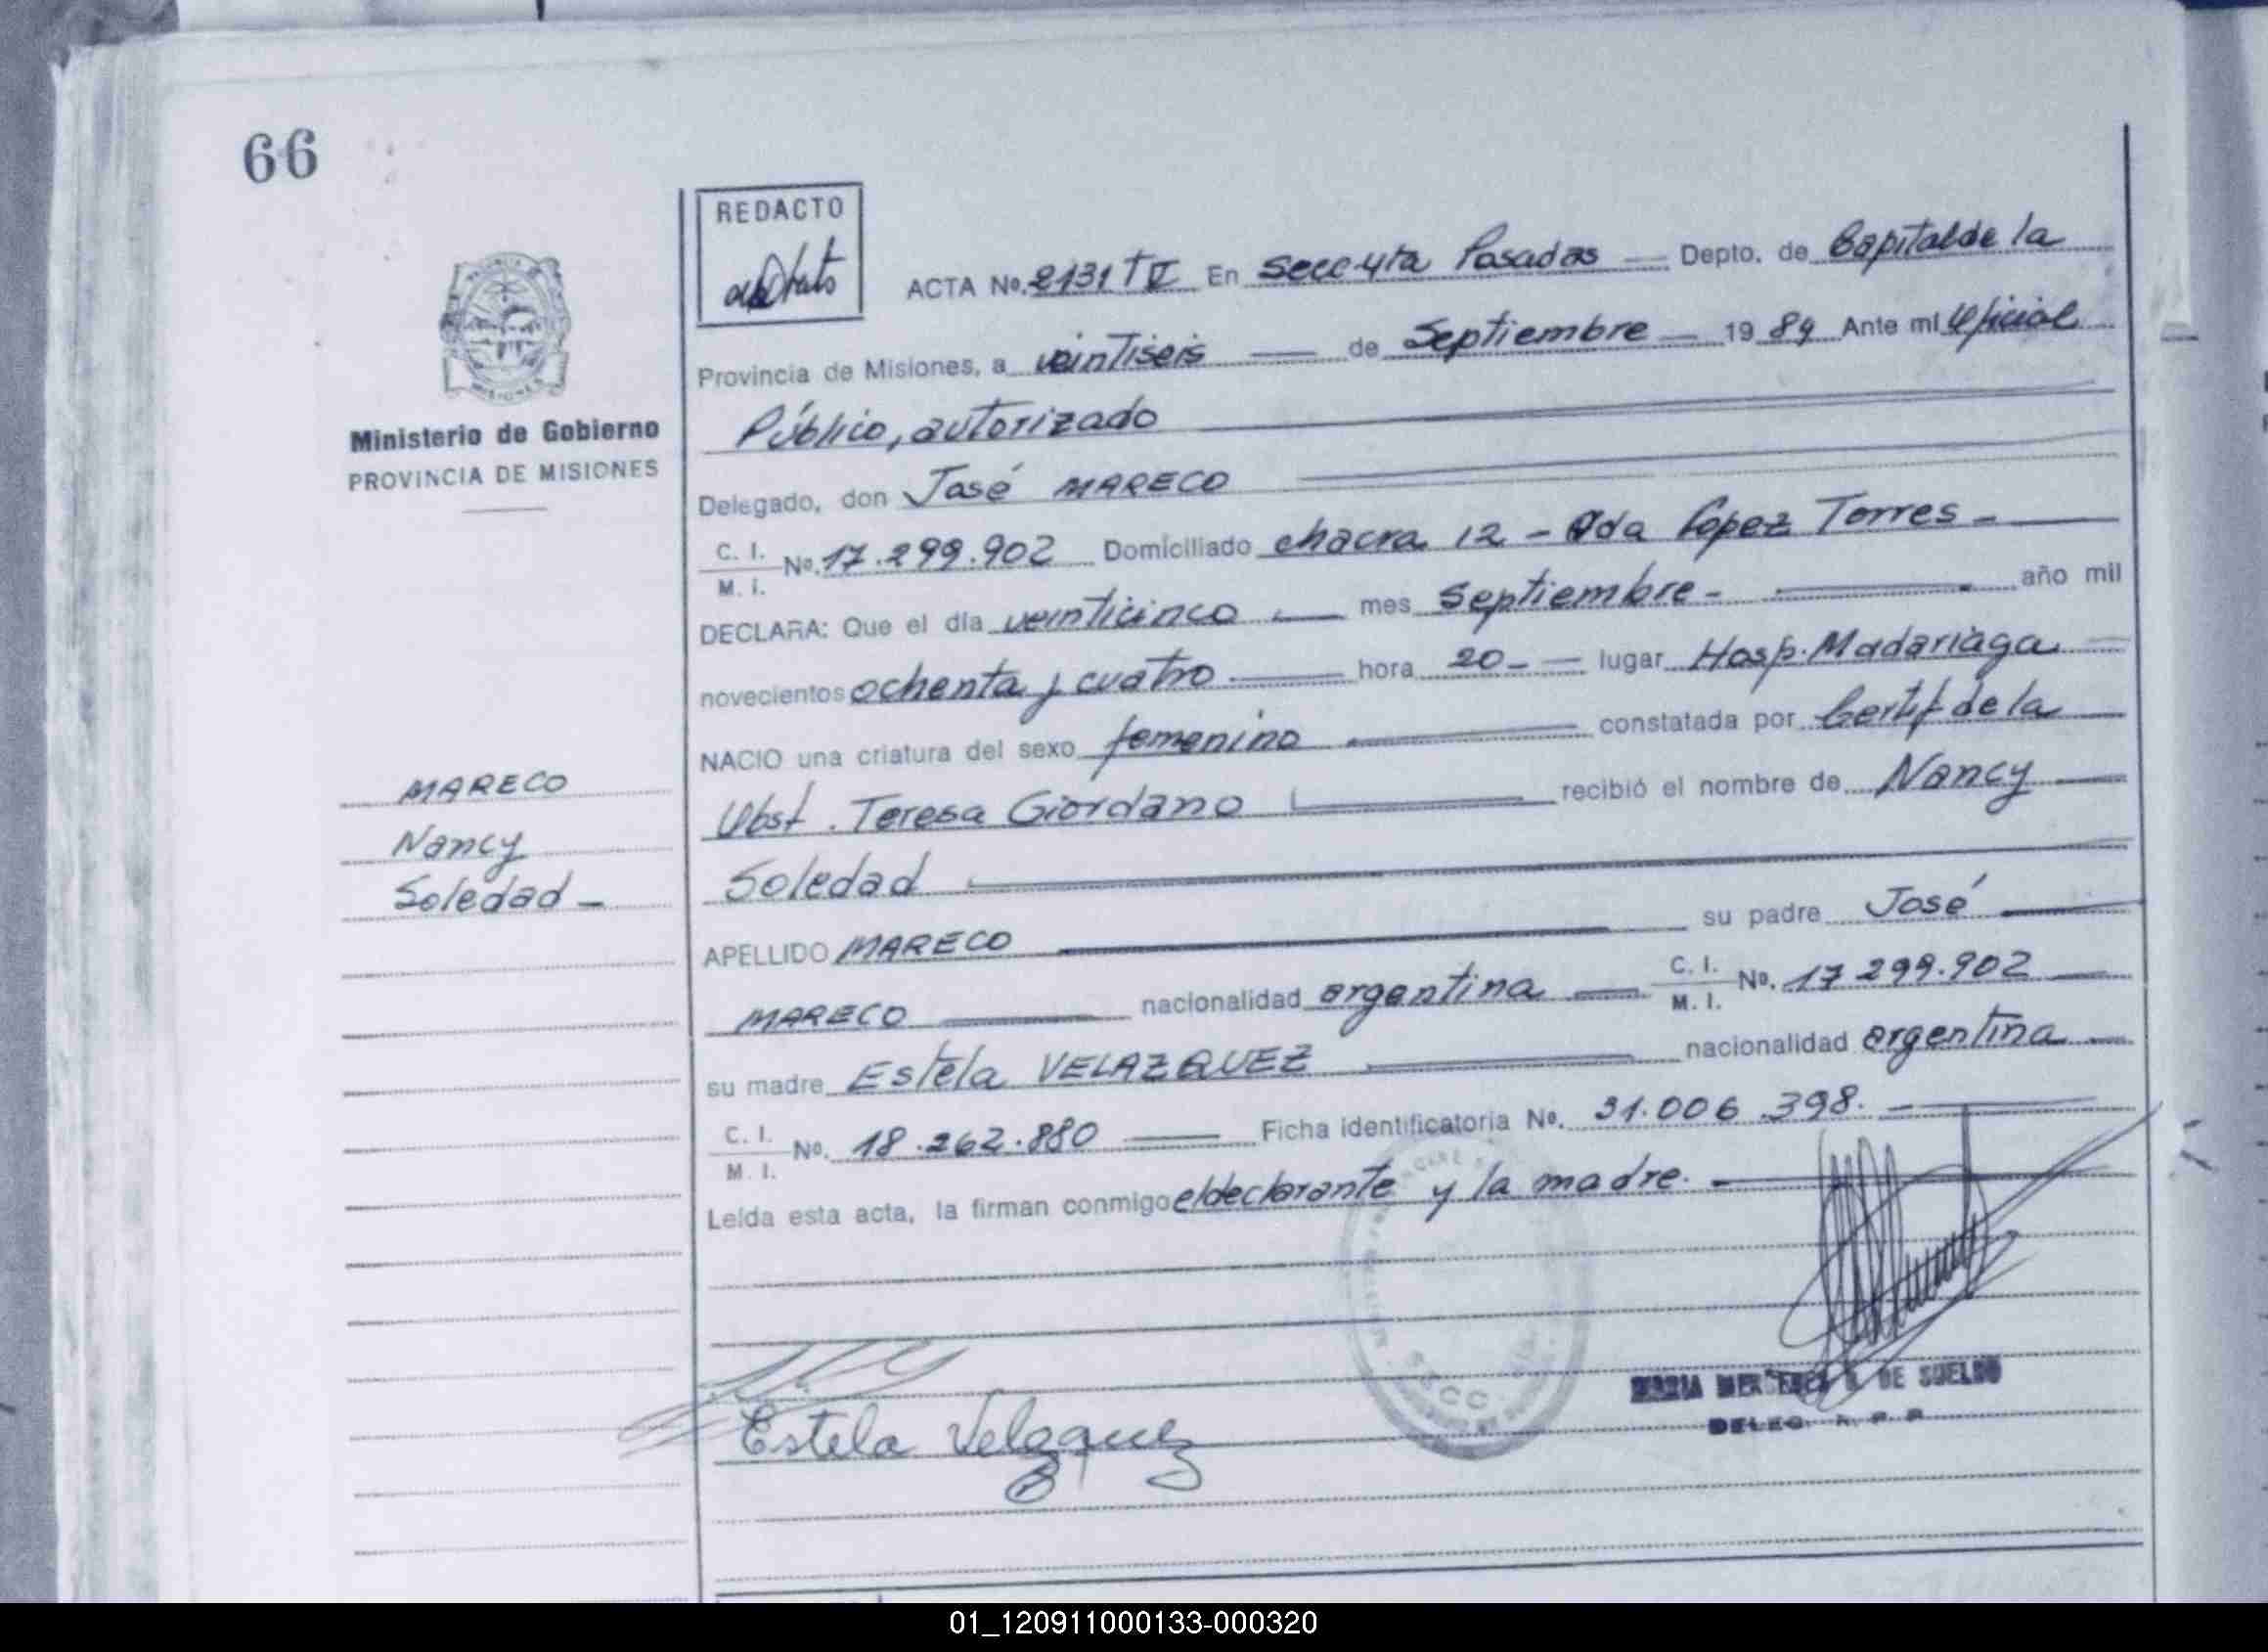 66
REDACTO
ACTA No. 2131 T V En Secc 4ta Posadas — Depto. de Capital de la
Provincia de Misiones, a veintiseis — de Septiembre — 19 84 Ante mi Oficial
Público, autorizado
Ministerio de Gobierno
PROVINCIA DE MISIONES
Delegado, don José MARECO
C. I.
M. I. No. 17.299.902 Domiciliado chacra 12 - Avda Lopez Torres -
DECLARA: Que el día veinticinco — mes Septiembre - — año mil
novecientos ochenta y cuatro — hora 20 - — lugar Hosp. Madariaga
NACIO una criatura del sexo femenino — constatada por Certif de la
Obst. Teresa Giordano — recibió el nombre de Nancy —
Soledad —
MARECO
Nancy
Soledad -
APELLIDO MARECO — su padre José —
MARECO — nacionalidad argentina — C. I. M. I. No. 17 299.902 —
su madre Estela VELAZQUEZ — nacionalidad argentina —
C. I.
M. I. No. 18.262.880 — Ficha identificatoria No. 31.006.398. -
Leída esta acta, la firman conmigo el declarante y la madre. -
Estela Velazquez
MARIA MERCEDES DE SUELDO
DELEG. R. P. P.
01_120911000133-000320